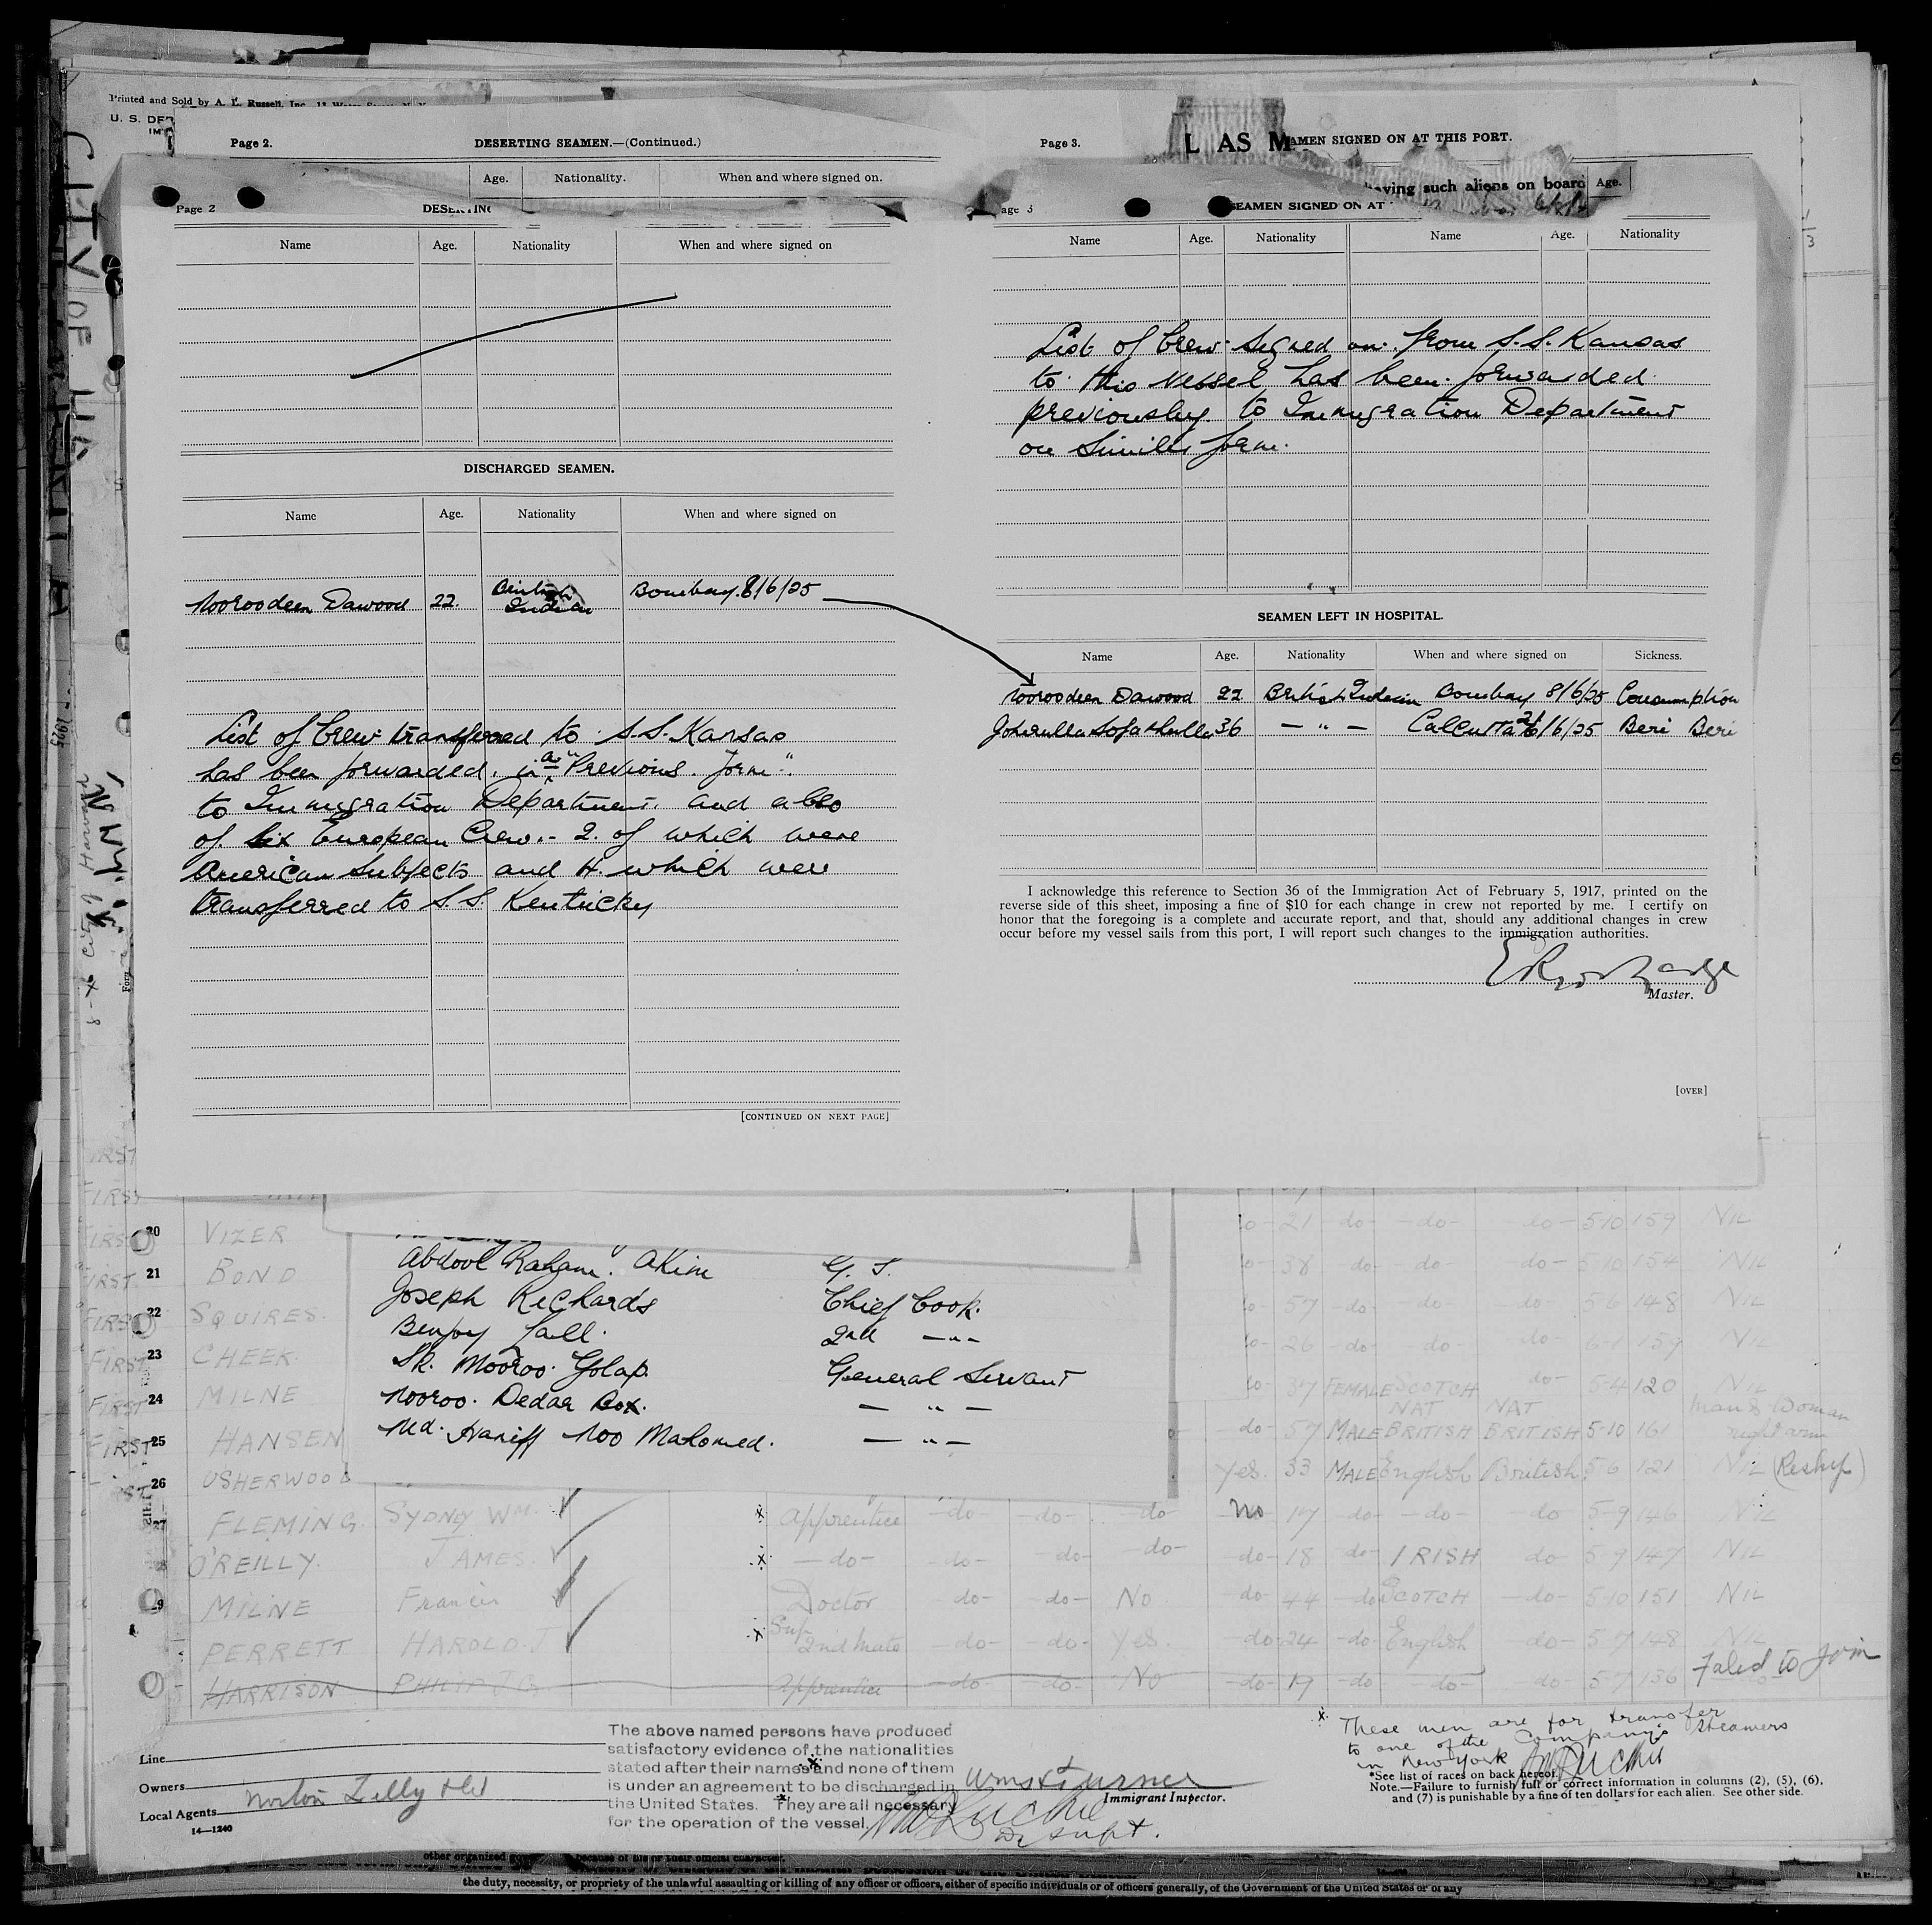 Printed and Sold by A. E. Russell, Inc.
U. S. DE
Page 2. DESERTING SEAMEN.—(Continued.)
Age. Nationality. When and where signed on.
Page 2
Name Age. Nationality When and where signed on
DISCHARGED SEAMEN.
Name Age. Nationality When and where signed on
Nooroodeen Dawood 22. British Indian Bombay. 8/6/25
List of Crew transferred to S.S. Kansas
has been forwarded. in "Previous. form".
to Immigration Department. and also
of Six European Crew.- 2. of which were
American Subjects and 4. which were
transferred to S.S. Kentucky
[CONTINUED ON NEXT PAGE]
Page 3. L AS M AMEN SIGNED ON AT THIS PORT.
aving such aliens on board Age.
SEAMEN SIGNED ON AT
Name Age. Nationality Name Age. Nationality
List of Crew signed on. from S.S. Kansas
to this vessel has been. forwarded
previously. to Immigration Department
on Similar form.
SEAMEN LEFT IN HOSPITAL.
Name Age. Nationality When and where signed on Sickness.
Nooroodeen Dawood 22 British Indian Bombay 8/6/25 Consumption
36 — " — Calcutta /6/25 Beri Beri
I acknowledge this reference to Section 36 of the Immigration Act of February 5, 1917, printed on the
reverse side of this sheet, imposing a fine of $10 for each change in crew not reported by me. I certify on
honor that the foregoing is a complete and accurate report, and that, should any additional changes in crew
occur before my vessel sails from this port, I will report such changes to the immigration authorities.
Master.
[OVER]
Abdool Rahgam. Akim G. S.
Joseph Richards Chief Cook.
Benjoy Lall. 2nd —"—
Sk. Mooroo. Golap. General Servant
Nooroo. Dedar Box. — " —
Md. Haniff Noo Mahomed. — " —
20 VIZER -do- 21 -do- -do- -do- 5 10 159 NIL
21 BOND 38 do- do- -do- 5 10 154 NIL
22 SQUIRES. 57 -do- -do- do- 5 6 148 NIL
23 CHEEK. 26 -do- -do- do- 6-1 159 NIL
24 MILNE 37 FEMALE SCOTCH do- 5-4 120 NIL
25 HANSEN do- 57 MALE NAT BRITISH NAT BRITISH 5-10 161 Man & Woman right arm
26 USHERWOOD Yes. 33 MALE English British 5 6 121 NIL (Reship)
27 FLEMING. SYDNEY WM. x Apprentice -do- -do- -do No 17 -do- -do- do 5-9 146 NIL
O'REILLY. JAMES. x -do- -do- -do- -do- -do- 18 -do- IRISH do 5 9 147 NIL
MILNE Francis Doctor do- -do- No do- 44 -do SCOTCH -do- 5 10 151 NIL
PERRETT HAROLD. J x Sup 2nd Mate -do- -do- Yes. -do- 24 -do- English -do- 5 7 148 NIL
HARRISON PHILIP J.G. Apprentice -do- -do- No -do- 19 -do -do- do- 5-7 136 Failed to join
Line
Owners
Local Agents Norton Lilly & Co
14—1240
The above named persons have produced
satisfactory evidence of the nationalities
stated after their names and none of them
is under an agreement to be discharged in
the United States. They are all necessary
for the operation of the vessel.
Immigrant Inspector.
x These men are for transfer
to one of the Company's Steamers
in New York
*See list of races on back hereof.
Note.—Failure to furnish full or correct information in columns (2), (5), (6),
and (7) is punishable by a fine of ten dollars for each alien. See other side.
because of his or their official character.
the duty, necessity, or propriety of the unlawful assaulting or killing of any officer or officers, either of specific individuals or of officers generally, of the Government of the United States or of any